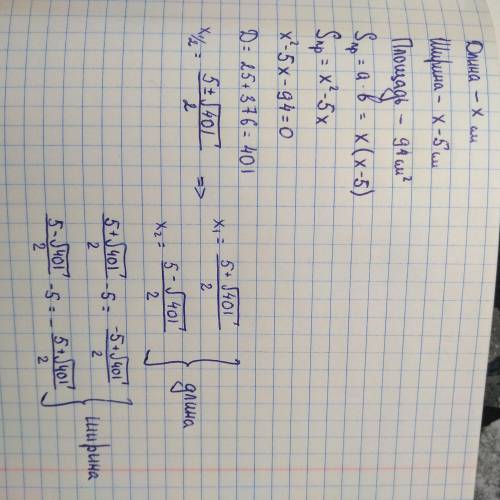 Длина - x см
Ширина - x-5 см
Площадь - 94 см²
Sпр = a · b = x(x-5)
Sпр = x²-5x
x²-5x-94=0
D = 25+376=401
x1/2 = (5±√401)/2 =>
x₁ = (5+√401)/2
x₂ = (5-√401)/2
} длина
(5+√401)/2 -5 = (-5+√401)/2
(5-√401)/2 -5 = -(5+√401)/2
} ширина